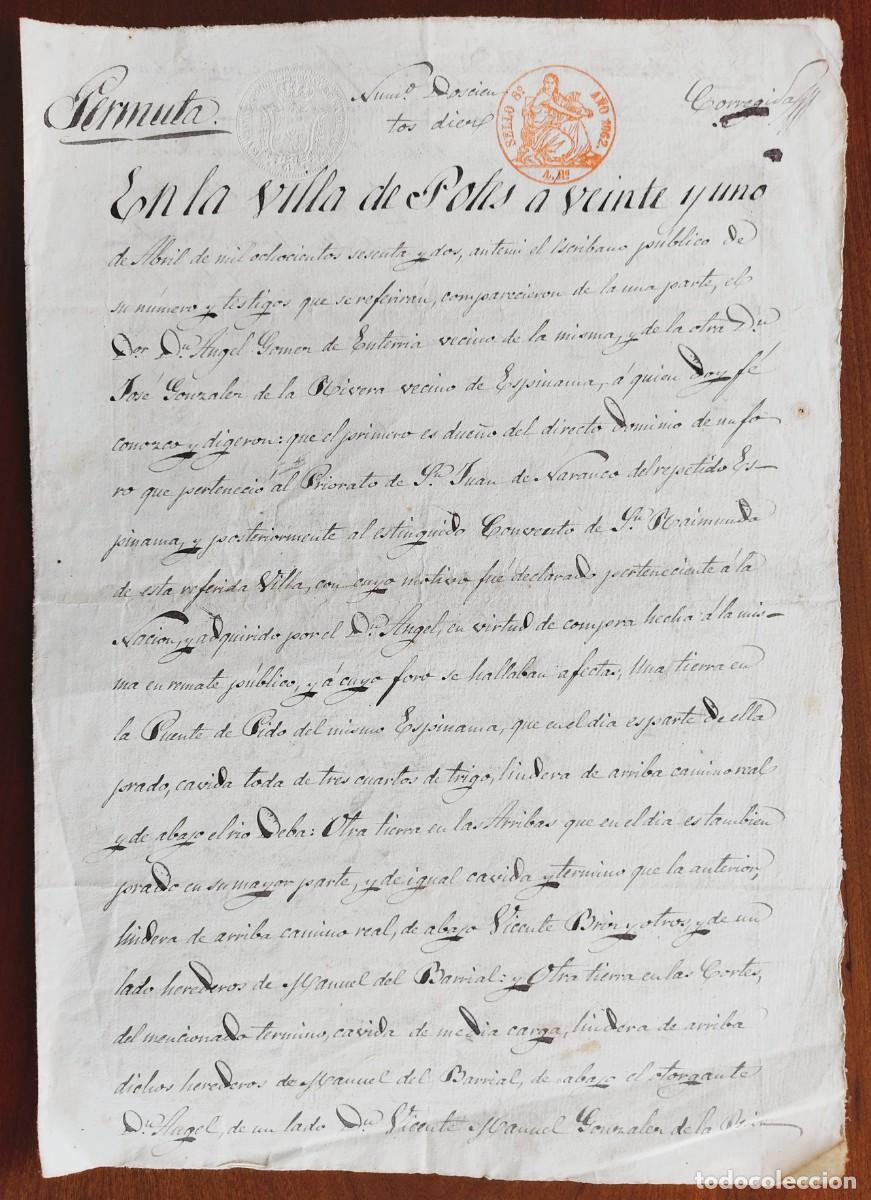 Permuta.
Num.o Doscien
tos diez
SELLO 8º AÑO 1862.
4 Rs
Corregida
En la villa de Potes a veinte y uno
de Abril de mil ochocientos sesenta y dos, antemi el Escribano público de
su número y testigos que se referiran, comparecieron de la una parte, el
Dor Dn Angel Gomez de Enterria vecino de la misma, y de la otra Dn
José Gonzalez de la Rivera vecino de Espinama, á quien doy fé
conozco y digeron: que el primero es dueño del directo dominio de un fo
ro que perteneció al Priorato de Sn Juan de Naranco del repetido Es-
pinama, y posteriormente al estinguido Convento de Sn Raimundo
de esta referida Villa, con cuyo motivo fué declarado perteneciente á la
Nacion, y adquirido por el Dn Angel, en virtud de compra hecha á la mis-
ma en remate público, y á cuyo foro se hallaban afectas, Una tierra en
la Puente de Pido del mismo Espinama, que en el dia es parte de ella
prado, cavida toda de tres cuartos de trigo, lindera de arriba camino real
y de abajo el rio Deba: Otra tierra en las Arribas que en el dia es tambien
prado en su mayor parte, y de igual cavida y termino que la anterior,
lindera de arriba camino real, de abajo Vicente Briz y otros y de un
lado herederos de Manuel del Barrial: y Otra tierra en las Cortes,
del mencionado termino, cavida de media carga, lindera de arriba
dichos herederos de Manuel del Barrial, de abajo el otorgante
Dn Angel, de un lado Dn Vicente Manuel Gonzalez de la
todocoleccion